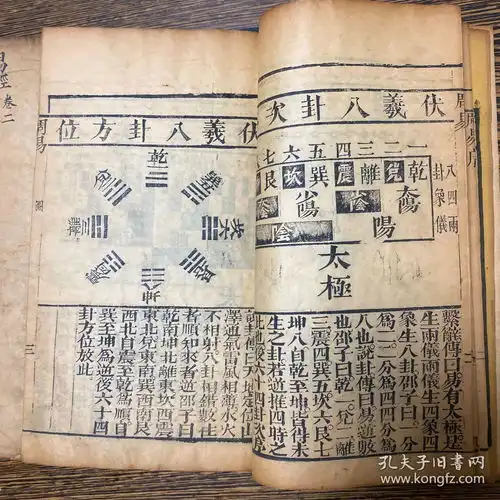 周易
伏羲八卦次
一二三四五六七
乾兌離震巽坎艮
八四兩
卦象儀
太陽
少陽
陽
陰
太極
繫辭傳曰易有太極是
生兩儀兩儀生四象四
象生八卦邵子曰一分
為二二分為四四分為
八也說卦傳曰易逆數
也邵子曰乾一兌二離
三震四巽五坎六艮七
坤八自乾至坤皆得未
生之卦若逆推四時之
比也後六十四卦次序
伏羲八卦方位
乾
坤
說卦傳曰天地定位山
澤通氣雷風相薄水火
不相射八卦相錯數往
者順知來者逆邵子曰
乾南坤北離東坎西震
東北兌東南巽西南艮
西北自震至乾為順自
巽至坤為逆後六十四
卦方位放此
周易
圖
三
易經
卷二
孔夫子旧书网
www.kongfz.com